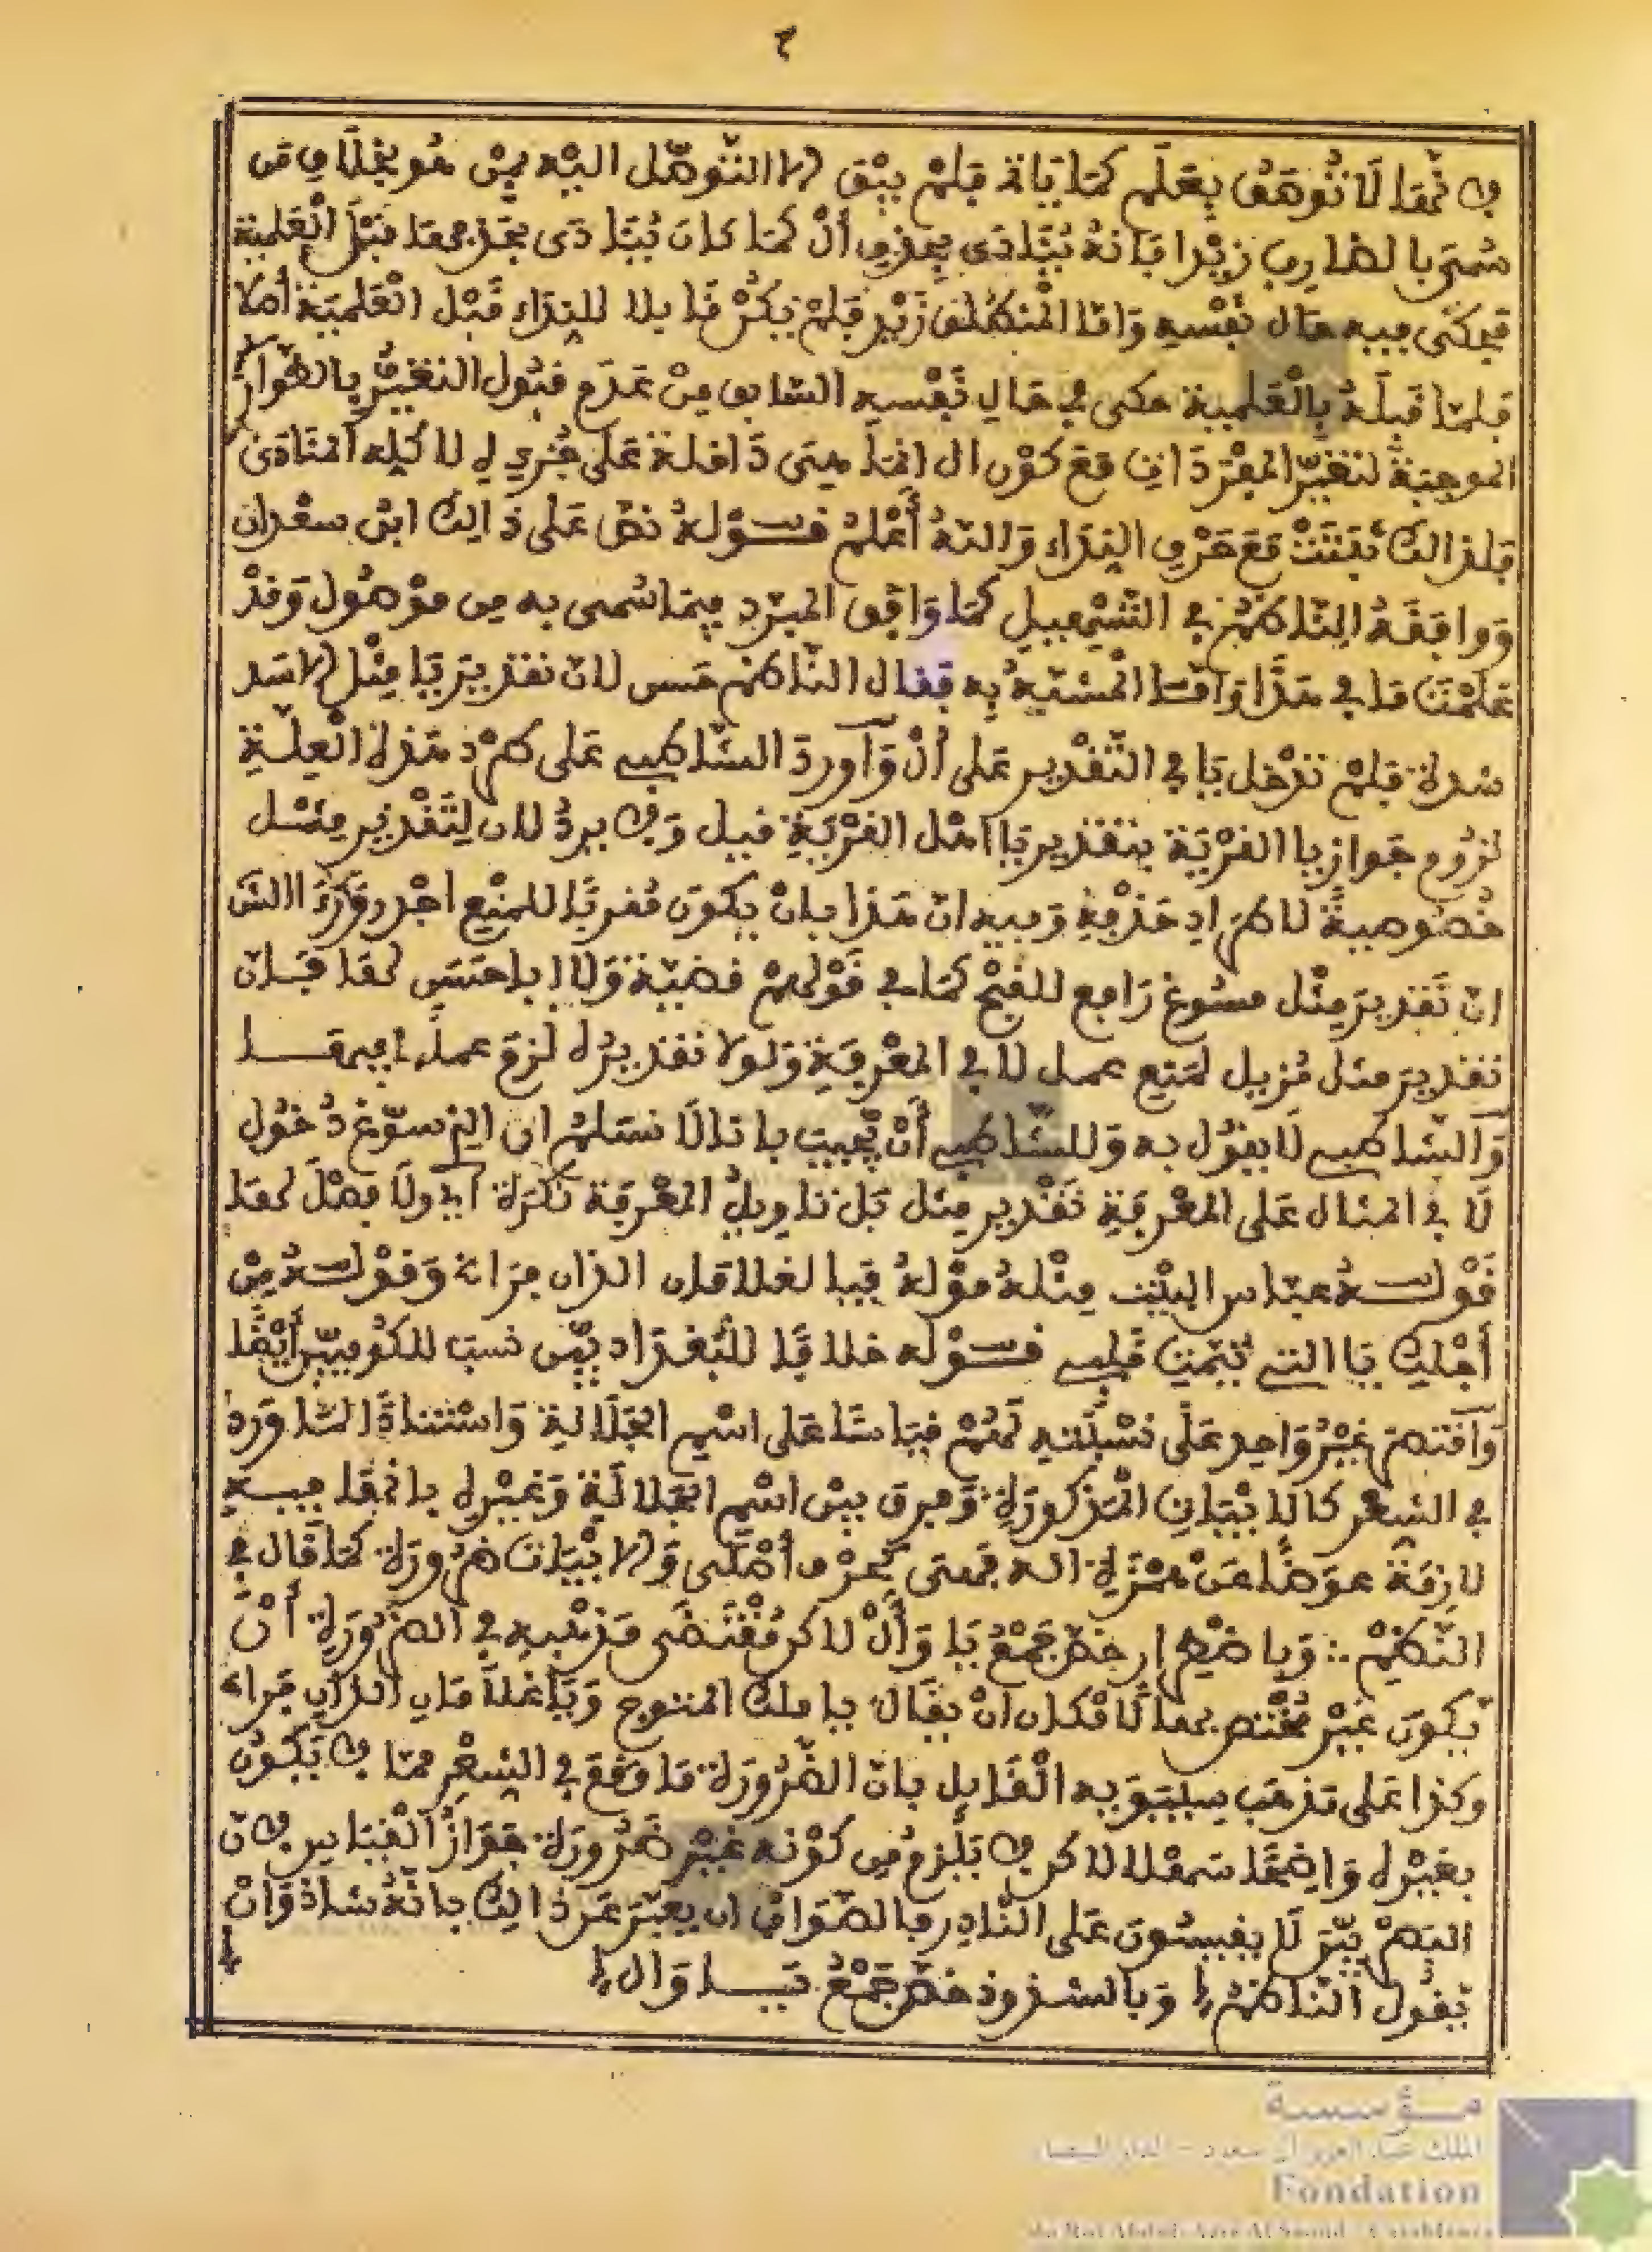 ٢
لانها لا توقف بعلم كما ياتي فلم يبق الا التوصل اليه بمن هو بخلاف من
سمي بالضارب زيدا فانه ينادى بحذف أل كما كان ينادى بحذفها قبل العلمية
فحكى فيه حال نفسه واما المنطلق زيد فلم يكن قابلا للنداء قبل العلمية أصلا
فلما قبله بالعلمية حكى في حال نفسه السابق من عدم قبول التغيير بالطوارئ
الموجبة لتغير المفرد اي مع كون ال انما هي داخلة على جزءه لا كله المنادى
فلذالك ثبتت مع حرف النداء والله أعلم قوله نص على ذالك ابن سعدان
ووافقه الناظم في التسهيل كما وافق المبرد فيما سمي به من موصول وقد
علمت ما في هذا وأما المشبه به فقال الناظم حسن لان تقدير يا مثل الاسد
شدة فلم تدخل يا في التقدير على أل وأورد الشاطبي على طرد هذه العلة
لزوم جواز يا القرية بتقدير يا أهل القرية قيل ولا يرد لان لتقدير مثل
خصوصية لاطراد حذفه وفيه ان هذا بان يكون مقربا للمنع اجدر
ان تقدير مثل مسوغ رافع للقبح كما في قولهم قضية ولا ابا حسن لها فان
تقدير مثل مزيل لمنع عمل لا في المعرفة ولولا تقديره لزم عملها فيها
والشاطبي لا يقول به وللشاطبي أن يجيب بانا لا نسلم ان الذي سوغ دخول
لا في المثال على المعرفة تقدير مثل بل تاويل المعرفة نكرة أي ولا فيصل لها
قوله عباس البيت مثله قوله فيا الغلامان اللذان فرا وقوله من
أجلك يا التي تيمت قلبي قوله خلافا للبغداديين نسب للكوفيين أيضا
وأقتصر غير واحد على نسبته لهم قياسا على اسم الجلالة واستنادا لما ورد
في الشعر كالابيات المذكورة وفرق بين اسم الجلالة وغيره بانها فيه
لازمة عوضا عن همزة اله فهي كحرف أصلي والابيات ضرورة كما قال في
النظم ∴ وباضطرار خص جمع يا وأل لاكن مقتضى مذهبه في الضرورة أن
يكون غير مختص بها لامكان ان يقال يا ملك المتوج ويا غلامان اللذان فرا
وكذا على مذهب سيبويه القايل بان الضرورة ما وقع في الشعر مما لا يكون
بغيره واضحا سهلا لاكن لا يلزم من كونه غير ضرورة جواز القياس لان
البصريين لا يقيسون على النادر فالصواب ان يعبر عن ذالك بانه شاذ وان
يقول الناظم وبالشذوذ خص جمع يا وال
مؤسسة
الملك عبد العزيز آل سعود - الدار البيضاء
Fondation
du Roi Abdul-Aziz Al Saoud - Casablanca